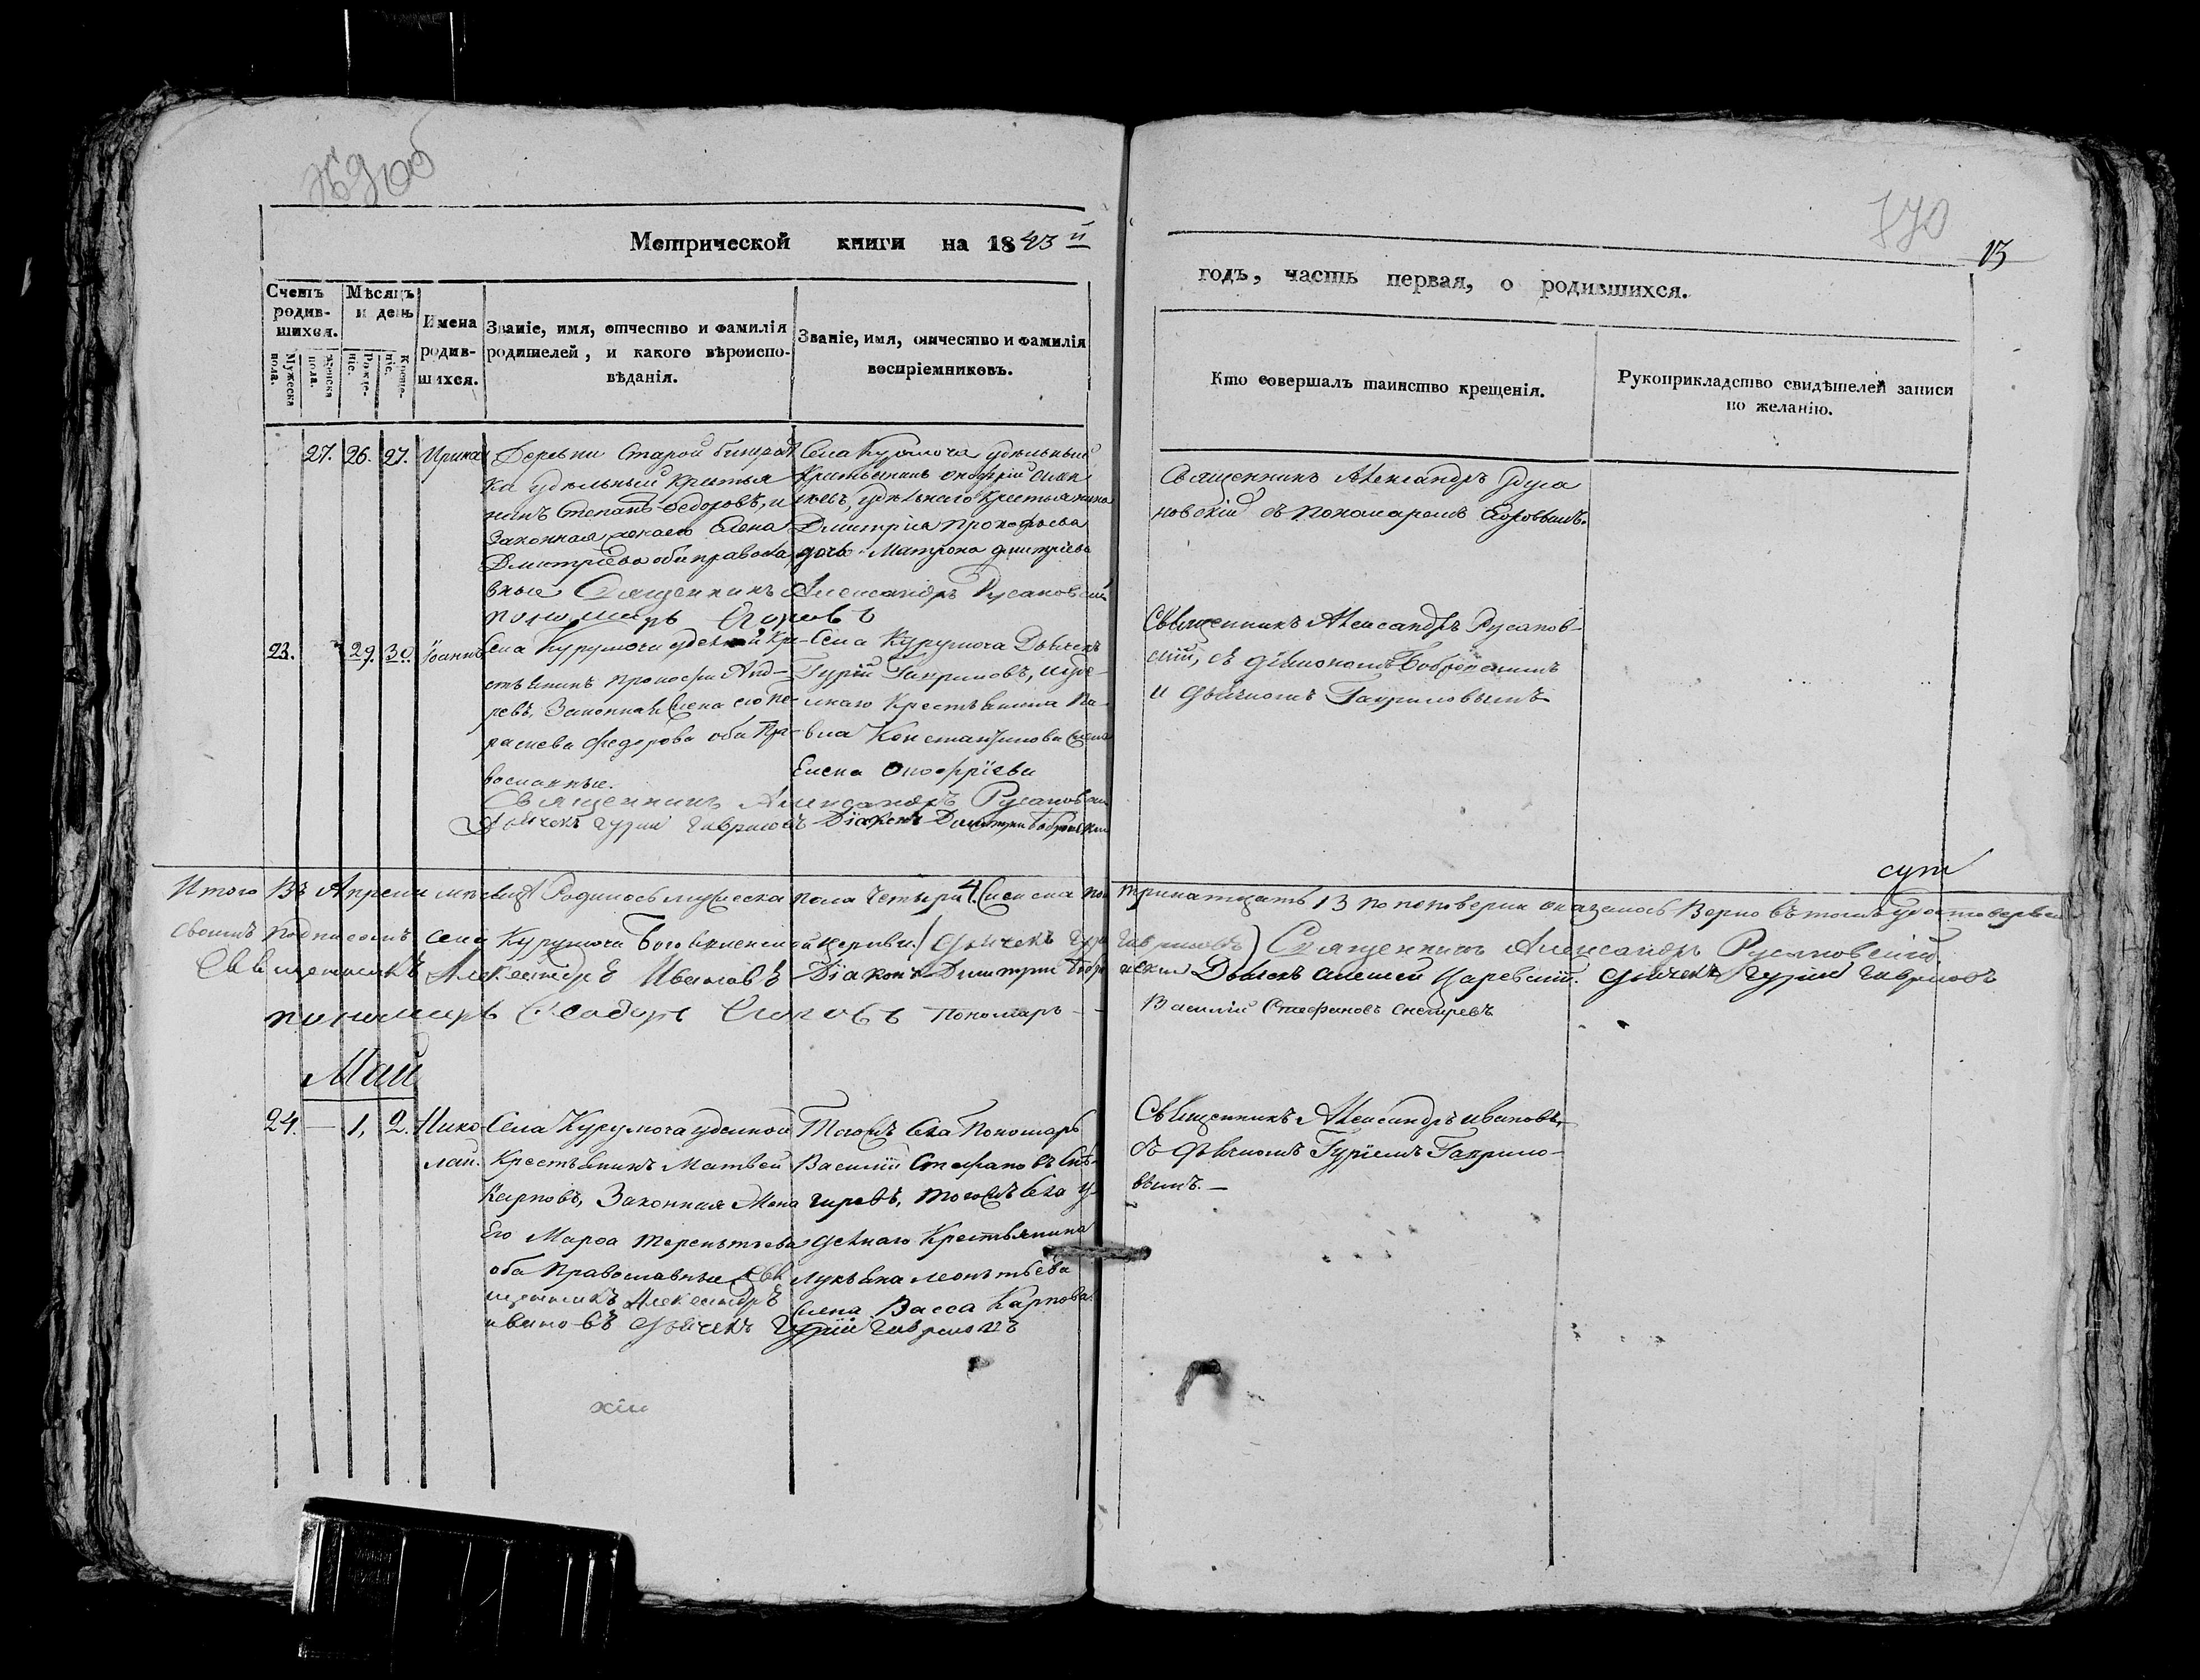 Метрической книги на 1843й
годъ, часть первая, о родившихся.
13
Счетъ родившихся.
Мужеска пола.
Женска пола.
Мѣсяцъ и день
Рожденіе.
Крещеніе.
Имена родившихся.
Званіе, имя, отчество и фамилія родителей, и какого вѣроисповѣданія.
Званіе, имя, отчество и фамилія воспріемниковъ.
Кто совершалъ таинство крещенія.
Рукоприкладство свидѣтелей записи по желанію.
27. 26. 27. Ирина
Деревни Старой
удѣльный крестья
нинъ Степанъ Федоровъ, и
Законная жена его Елена
Дмитріева оба православ
вные
Села Курумоча удѣльный
Крестьянинъ Онофрій
удѣльнаго Крестьянина
Дмитрія Прокофьева
дочь Матрона Дмитріева
Священникъ Александръ Русановскій
пономарь Егоровъ
Священникъ Александръ Руса
новскій съ пономаремъ Егоровымъ.
23. 29. 30. Іоаннъ
Села Курумочи удѣльной Кре-
стьянинъ Прокофій Анд-
ревъ, Законная жена его Па-
раскева Федорова оба Пра-
вославные.
Села Курумоча Дьячекъ
Гурій Гавриловъ, и удѣ-
льнаго Крестьянина Па-
вла Константинова жена
Елена Онофріева
Священникъ Александръ Русановскій
Дьячекъ Гурій Гавриловъ Діаконъ Димитрій Бобровскій
Священникъ Александръ Русанов-
скій, съ діакономъ Бобровскимъ
и дьячкомъ Гавриловымъ
Итого Въ Апрели месяце Родилось мужеска пола Четыри 4. Женска пол тринатцать 13 по поверки оказалось Верно въ томъ удостоверяем
своимъ подписомъ села Курумочи Богоявленской церкви. Дьячекъ Гурій Гавриловъ) Священникъ Александръ Русановскій
Священникъ Александръ Ивановъ Діаконъ Димитрій Бобровскій Дьячекъ Алексей Царевскій. Дьячекъ Гурій Гавриловъ
пономарь Егоровъ Пономарь Василій Стефановъ Снегиревъ
Май
24. — 1, 2. Нико-
лай.
Села Курумоча удельной
Крестьянинъ Матвей
Карповъ, Законная Жена
Его Марѳа Терентьева
оба Православные Свя
щенникъ Александръ
Ивановъ Дьячекъ Гурій Гавриловъ
Тогожъ села Пономарь
Василій Стефановъ Сне-
гиревъ, тогожъ села у-
дельнаго Крестьянина
Лукьяна Леонтьева
жена Васса Карпова
Священникъ Александръ Ивановъ,
съ дьячкомъ Гуріемъ Гаврило-
вымъ.—